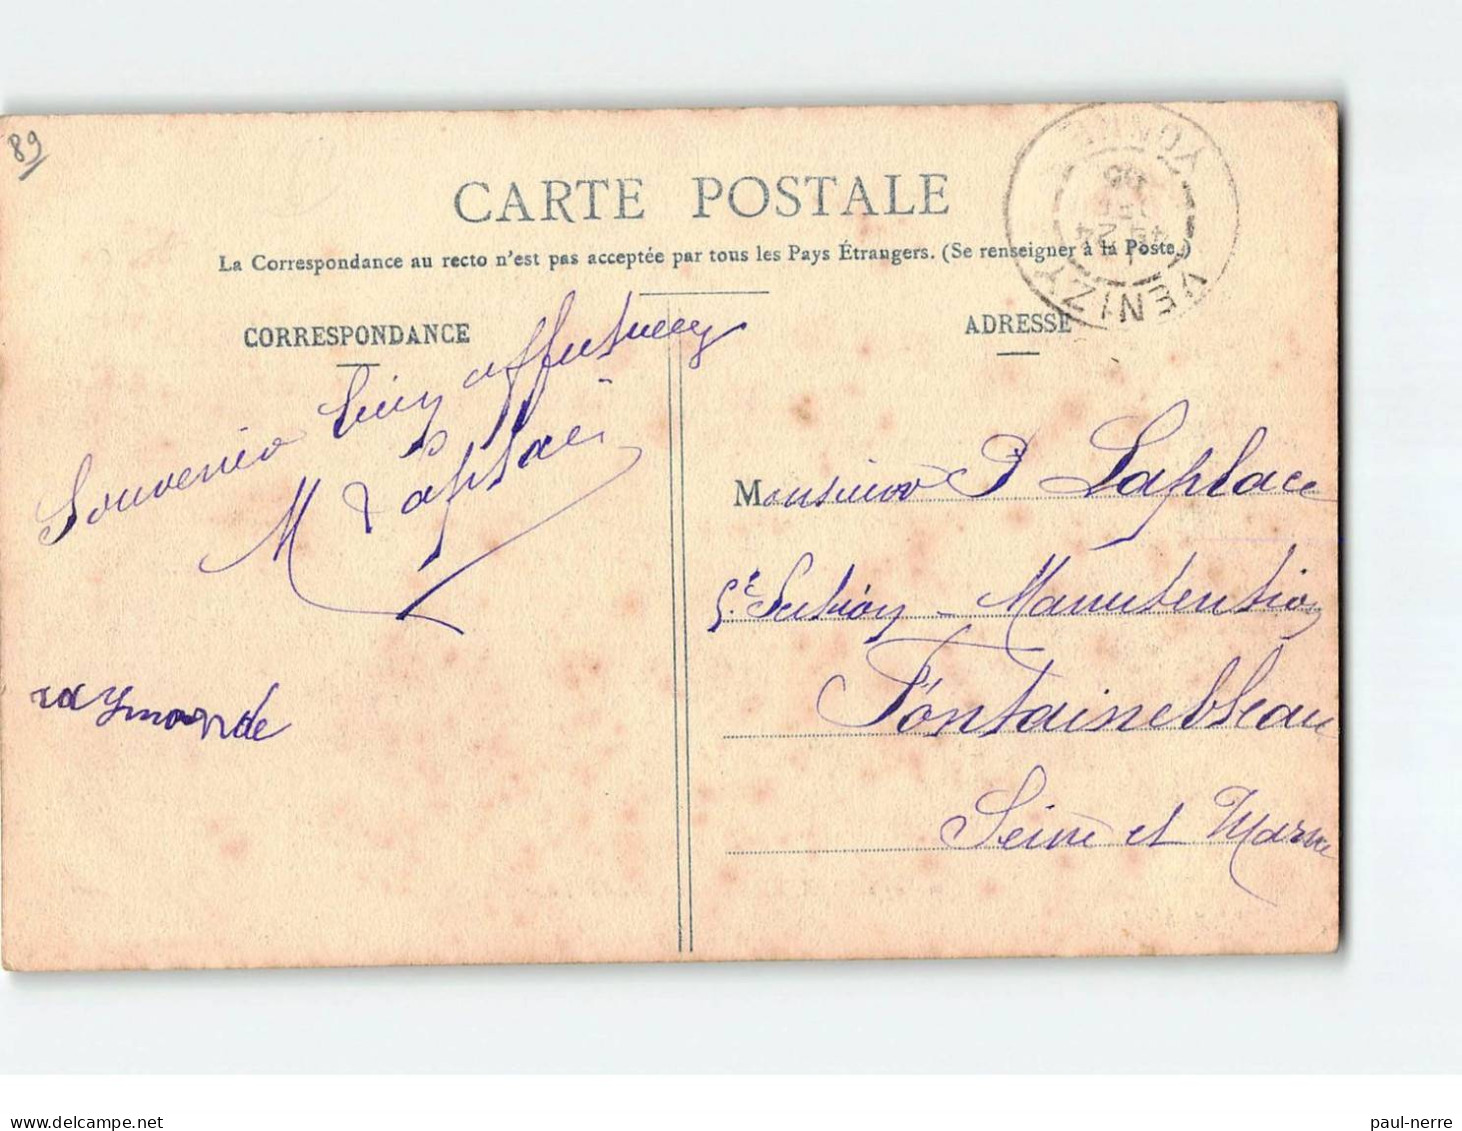 89
CARTE POSTALE
La Correspondance au recto n'est pas acceptée par tous les Pays Étrangers. (Se renseigner à la Poste.)
CORRESPONDANCE
Souvenir bien affectueux
M Laplace
raymonde
ADRESSE
VENIZY
YONNE
24
05
Monsieur P Laplace
5e Section - Manutention
Fontainebleau
Seine et Marne
paul-nerre